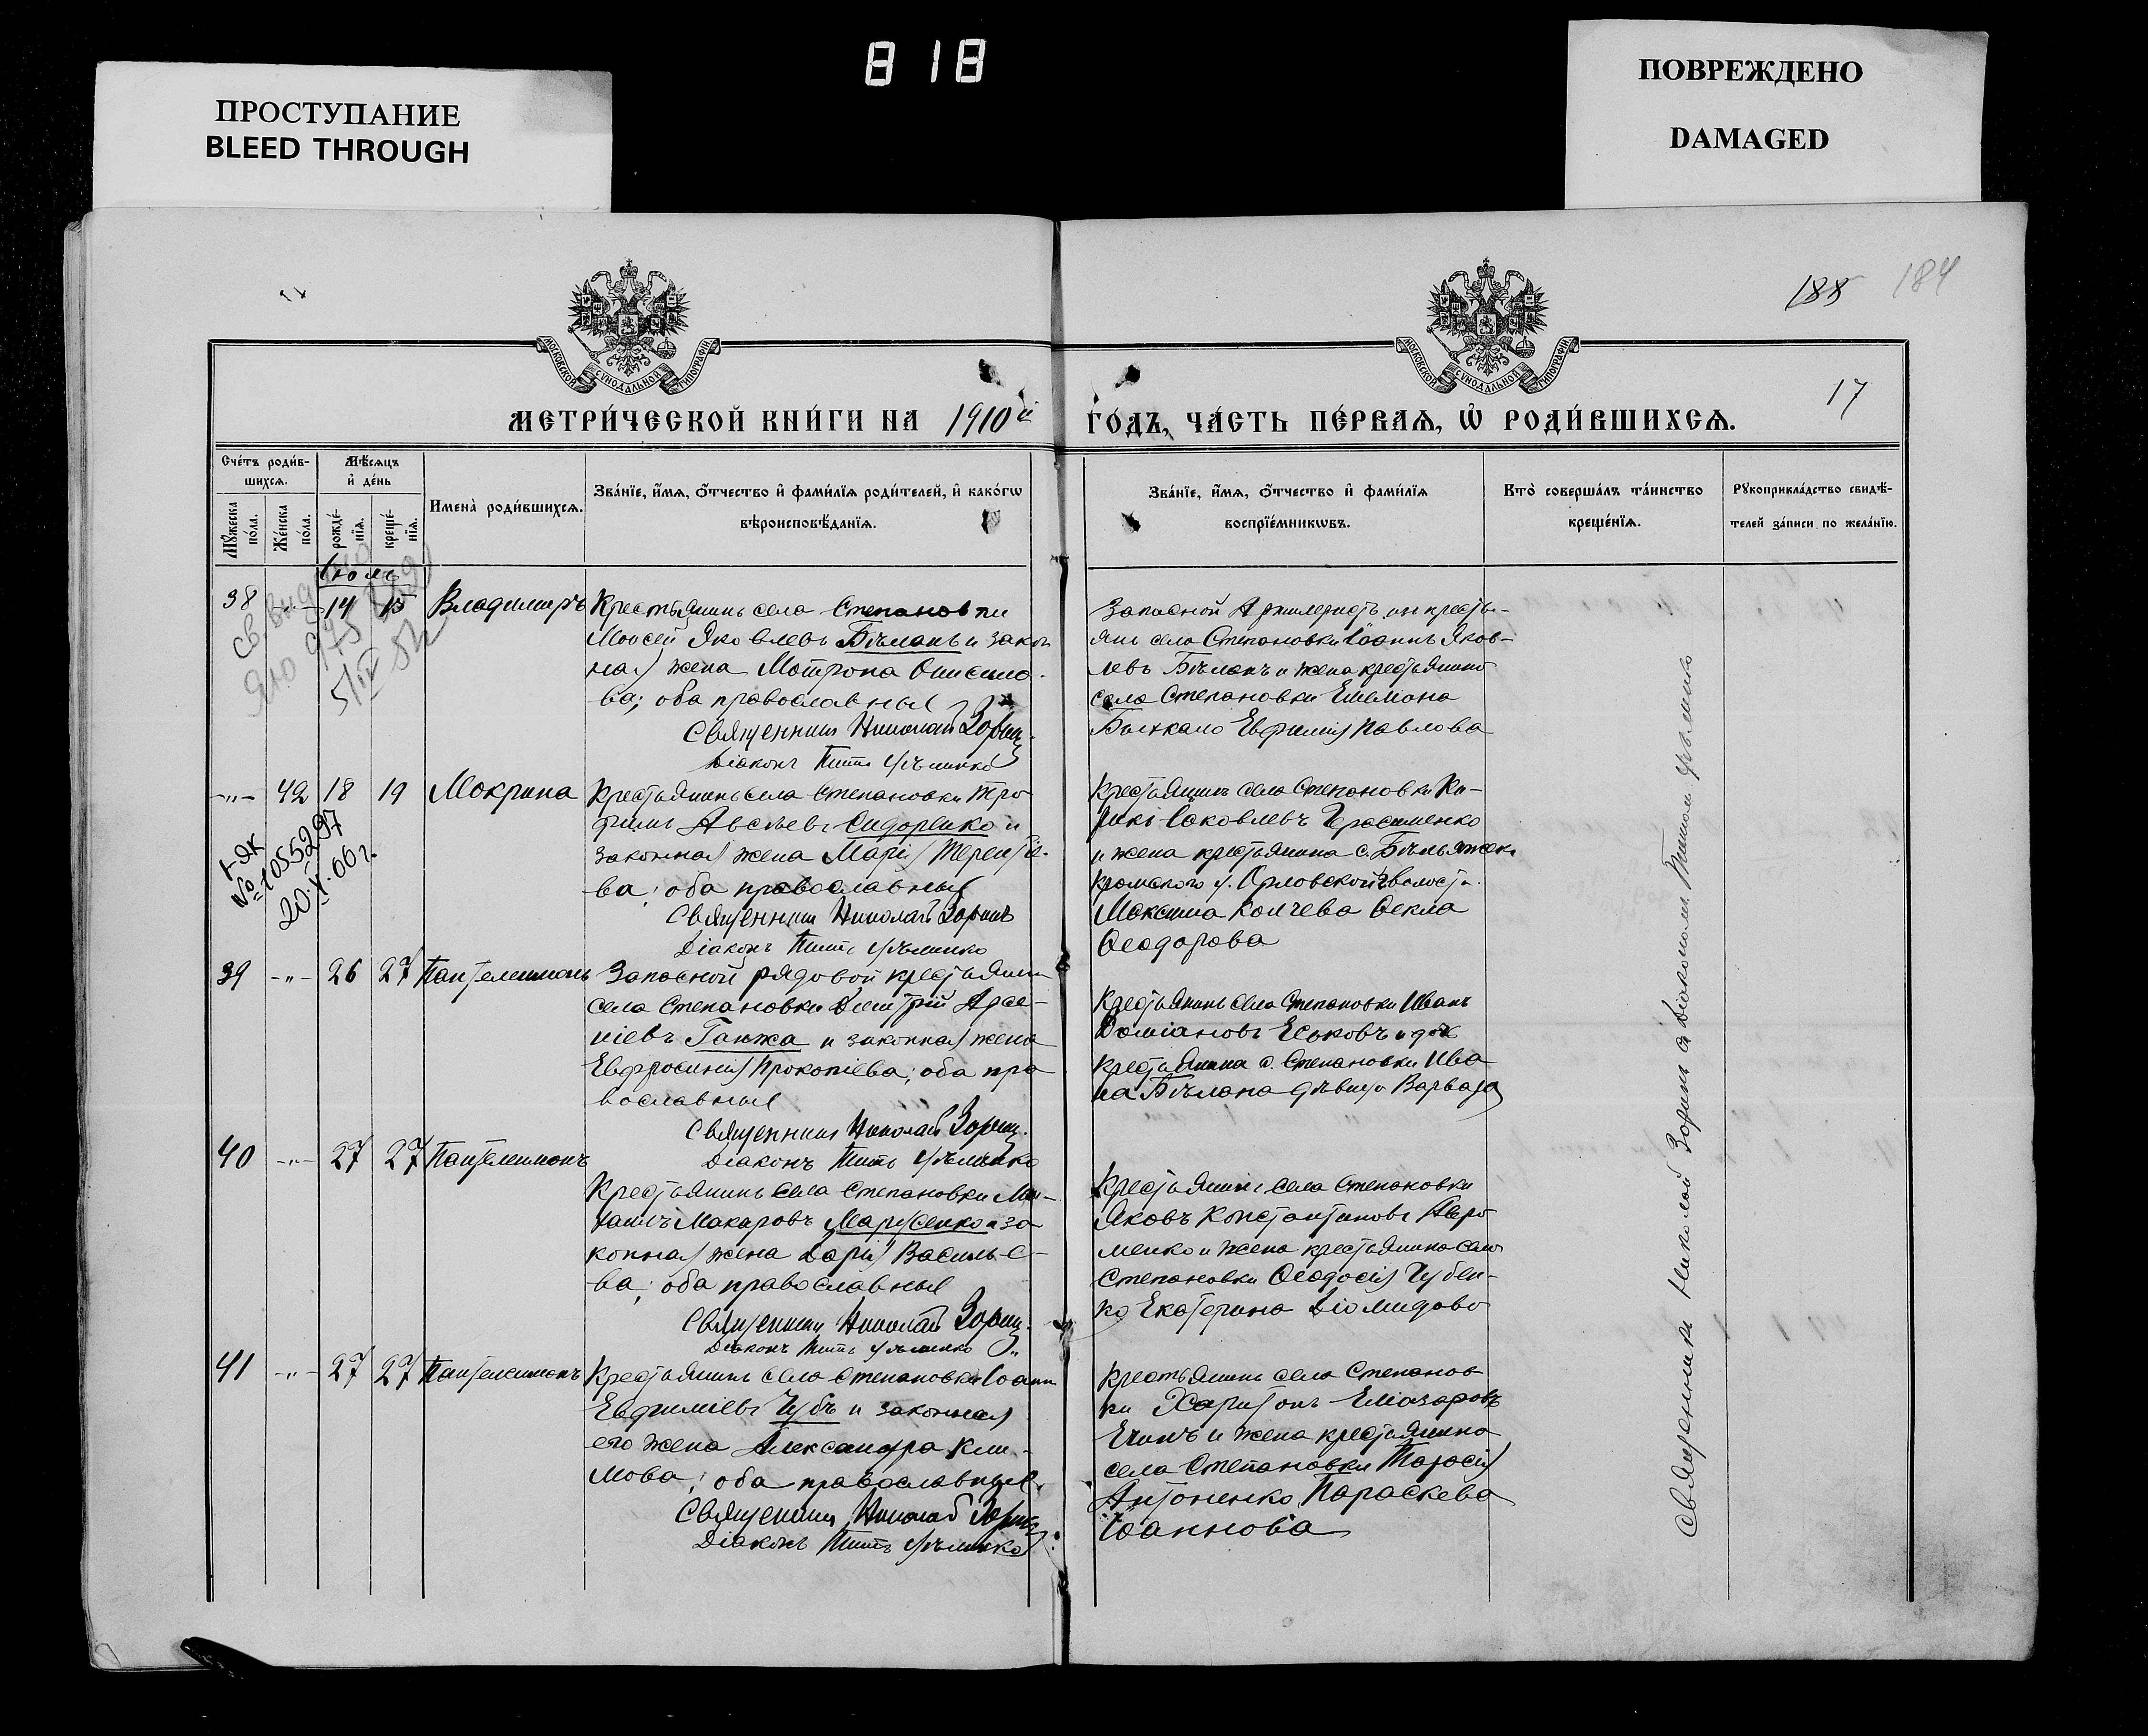 818
ПРОСТУПАНИЕ
BLEED THROUGH
ПОВРЕЖДЕНО
DAMAGED
188 184
МОСКОВСКОЙ СУНОДАЛЬНОЙ ТИПОГРАФІИ
МОСКОВСКОЙ СУНОДАЛЬНОЙ ТИПОГРАФІИ
17
МЕТРИ́ЧЕСКОЙ КНИ́ГИ НА 1910й ГО́ДЪ, ЧА́СТЬ ПЕ́РВАѦ, Ѡ҆ РОДИ́ВШИХСѦ.
Сче́тъ роди́в-
шихсѧ.
Мꙋ́жеска по́ла.
Же́нска по́ла.
Мѣ́сѧцъ
и҆ де́нь
рожде́-
нїѧ.
креще́-
нїѧ.
Имена̀ роди́вшихсѧ.
Зва́нїе, и҆́мѧ, ѻ҆́тчество и҆ фами́лїѧ роди́телей, и҆ како́гѡ
вѣроисповѣ́данїѧ.
Зва́нїе, и҆́мѧ, ѻ҆́тчество и҆ фами́лїѧ
воспрїе́мникѡвъ.
Кто̀ соверша́лъ та́инство
креще́нїѧ.
Рꙋкоприкла́дство свидѣ́-
телей за́писи по жела́нїю.
Іюль
38 -"- 14 15 Владимиръ
Крестьянинъ села Степановки
Моисей Яковлевъ Бѣланъ и закон
ная жена Матрона Онисимо-
ва; оба православные
Священникъ Николай Зоринъ
Діаконъ Титъ
Запасной Артиллеристъ из кресть-
янъ села Степановки Іоаннъ Яков-
левъ Бѣланъ и жена крестьянина
села Степановки
Евфимія Павлова
5/IV 82
-"- 42 18 19 Макрина
I-ЯК
№ 1055297
20.X.06 г.
Крестьянинъ села Степановки Тро
фимъ Авсѣевъ Сидоренко и
законная жена Марія Терентіе-
ва; оба православные
Священникъ Николай Зоринъ
Діаконъ Титъ
Крестьянинъ села Степановки Ки-
рикъ Іаковлевъ Герасименко
и жена крестьянина с.
Кромского у. Орловской
Максима Ѳекла
Ѳеодорова
39 -"- 26 27 Пантелеимонъ
Запасной рядовой крестьянинъ
села Степановки Димитрій Арсе-
ніевъ Ганжа и законная жена
Евфросинія Прокопіева; оба пра
вославные
Священникъ Николай Зоринъ
Діаконъ Титъ
Крестьянинъ села Степановки Иванъ
Даміановъ Еськовъ и дочь
крестьянина с. Степановки Ива
на Бѣлана дѣвица Варвара
40 -"- 27 27 Пантелеимонъ
Крестьянинъ села Степановки Ми-
хаилъ Макаровъ Марусенко и за
конная жена Дарія Василье-
ва; оба православные
Священникъ Николай Зоринъ
Діаконъ Титъ
Крестьянинъ села Степановки
Яковъ Константиновъ Авра
менко и жена крестьянина села
Степановки Ѳеодосія Чубен-
ко Екатерина Діомидова
41 -"- 27 27 Пантелеимонъ
Крестьянинъ села Степановки Іоаннъ
Евфиміевъ Чубъ и законная
его жена Александра Кли-
мова; оба православные
Священникъ Николай Зоринъ
Діаконъ Титъ
Крестьянинъ села Степанов
ки Харитонъ Еліазаровъ
и жена крестьянина
села Степановки Тарасія
Антоненко Параскева
Іоаннова
Священникъ Николай Зоринъ съ Діакономъ Титомъ